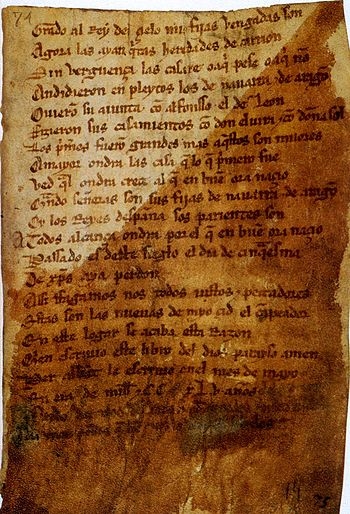 71
Grado al Rey del çielo mis fijas vengadas son
Agora las ayan qitas heredades de carrion
Sin verguença las casare o aq pese o aq no
Andidieron en pleytos los de nauarra & de arago
Ouiero su aiunta co alfonsso el de Leon
Fizieron sus casamientos co don eluira & co doña sol
Los pmos fuero grandes mas aqstos son miiores
A mayor ondra las casa q lo q pmero fue
Ved ql ondra creçe al q en bue ora naçio
Qndo señoras son sus fijas de nauarra & de arago
Oy los Reyes despaña sos parientes son
A todos alcança ondra por el q en bue ora naçio
Passado es deste sieglo el dia de cinqesma
De xps aya perdon
Assi ffagamos nos todos iustos & peccadores
Estas son las nueuas de myo çid el capeador
En este logar se acaba esta Razon
Quien escriuio este libro del dios parayso amen
Per abbat le escriuio en el mes de mayo
En era de mill & C.C xL.v. años